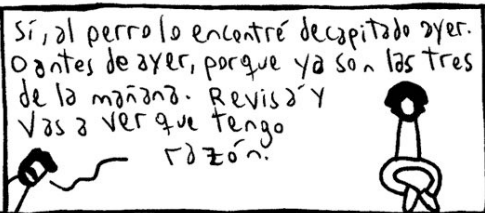 Sí, al perro lo encontré decapitado ayer.
O antes de ayer, porque ya son las tres
de la mañana. Revisá y
vas a ver que tengo
razón.